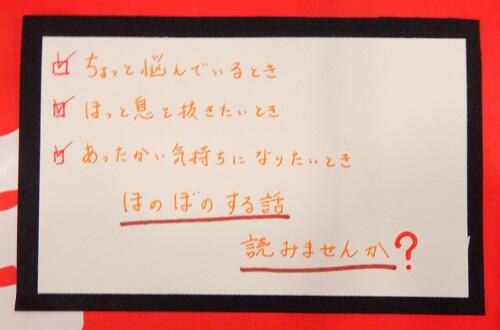 ☑ ちょっと悩んでいるとき
☑ ほっと息を抜きたいとき
☑ あったかい気持ちになりたいとき
ほのぼのする話
読みませんか?